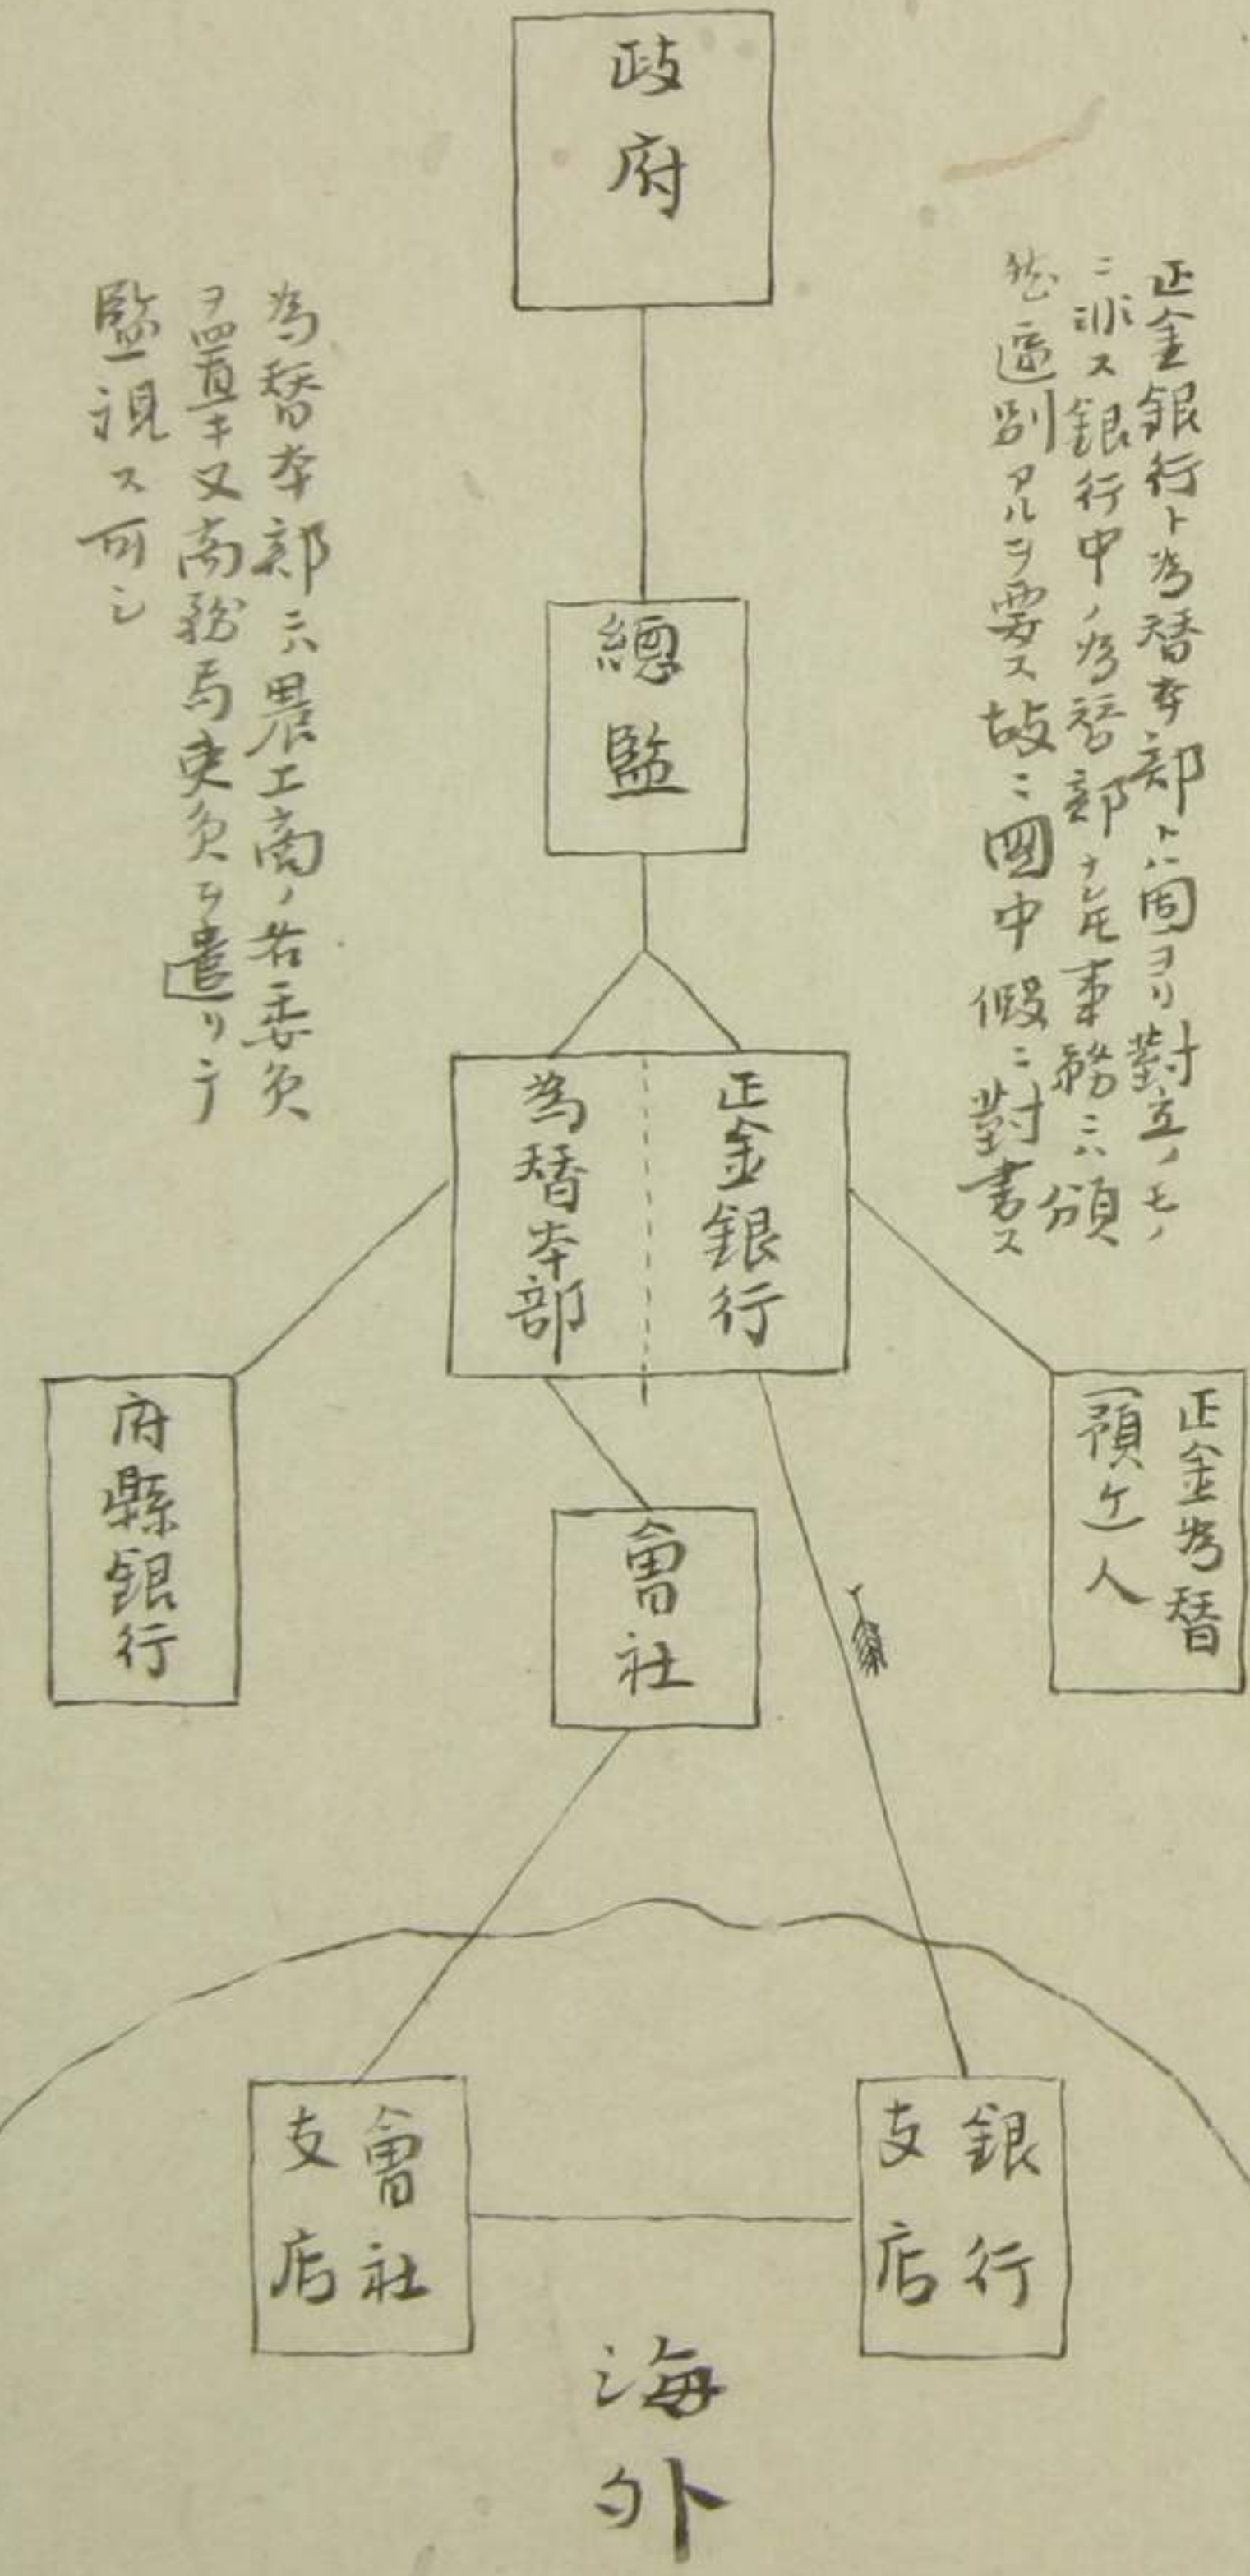 政府
正金銀行ト為替本部トハ固ヨリ對立ノモノ
ニ非ス銀行中ノ為替部ナレ𪜈事務ニハ頒
然區別アルヲ要ス故ニ圖中假ニ對書ス
為替本部ニハ農工商ノ若委員
ヲ置キ又商務局吏員ヲ遣リテ
監視ス可シ
總監
正金銀行
為替本部
正金為替
(預ケ)人
府縣銀行
會社
銀行
支店
會社
支店
海外